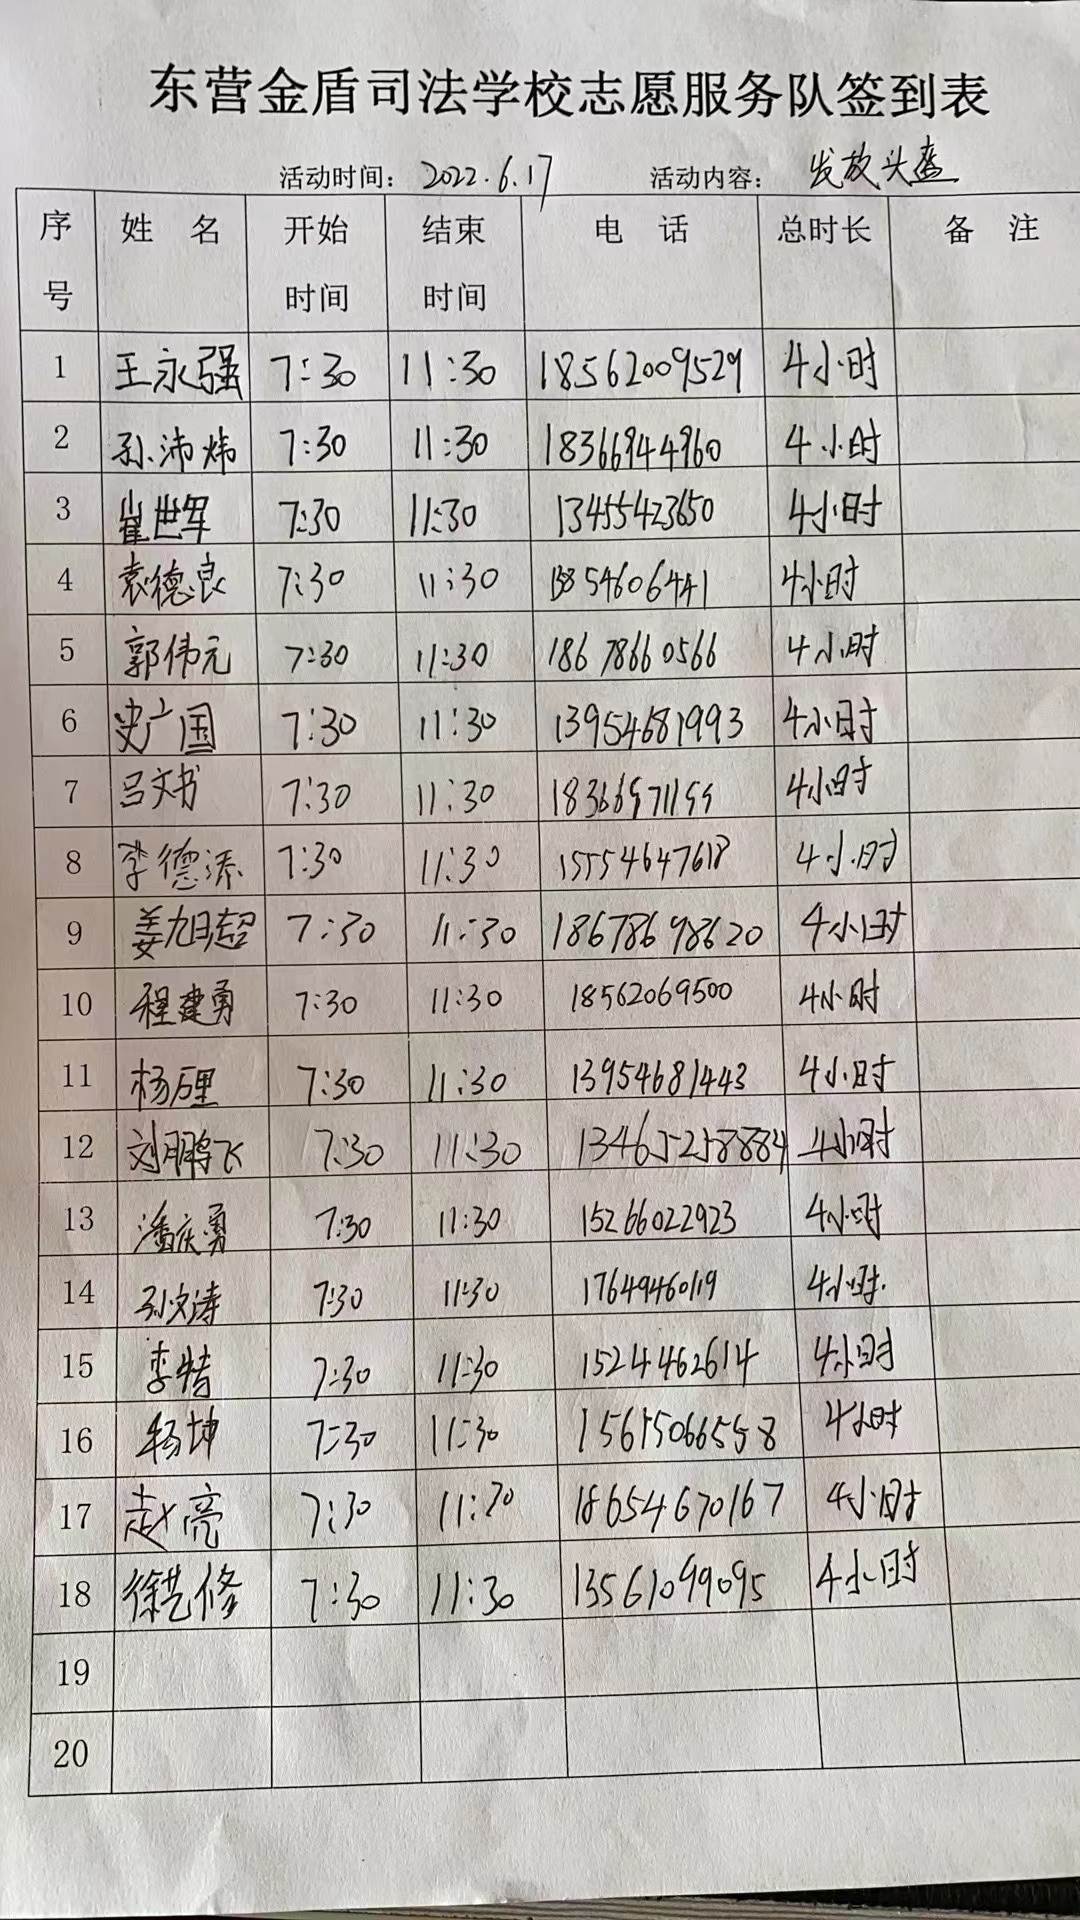 东营金盾司法学校志愿服务队签到表
活动时间: 2022.6.17 活动内容: 发放头盔
序号 姓 名 开始时间 结束时间 电 话 总时长 备 注
1 王永强 7:30 11:30 18562009529 4小时
2 孙沛炜 7:30 11:30 18366944960 4小时
3 崔世军 7:30 11:30 13455423650 4小时
4 袁德良 7:30 11:30 13854606441 4小时
5 郭伟元 7:30 11:30 18678660566 4小时
6 史广国 7:30 11:30 13954681993 4小时
7 吕文书 7:30 11:30 4小时
8 李德添 7:30 11:30 15554647618 4小时
9 姜旭超 7:30 11:30 18678698620 4小时
10 程建勇 7:30 11:30 18562069500 4小时
11 杨厘 7:30 11:30 13954681443 4小时
12 刘鹏飞 7:30 11:30 13465258884 4小时
13 潘庆勇 7:30 11:30 15266022923 4小时
14 孙文涛 7:30 11:30 17649460119 4小时.
15 李情 7:30 11:30 15244462614 4小时
16 杨坤 7:30 11:30 15615066558 4小时
17 赵亮 7:30 11:30 18654670167 4小时
18 徐艺修 7:30 11:30 13561099095 4小时
19
20